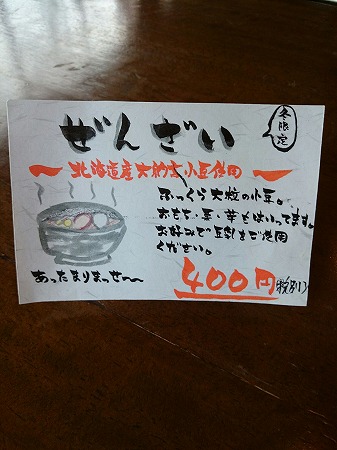 冬限定
ぜんざい
北海道産大納言小豆使用
ふっくら大粒の小豆。
おもち・豆・芋もはいってます。
お好みで豆乳をご使用
ください。
あったまりまっせ〜
400円(税別)